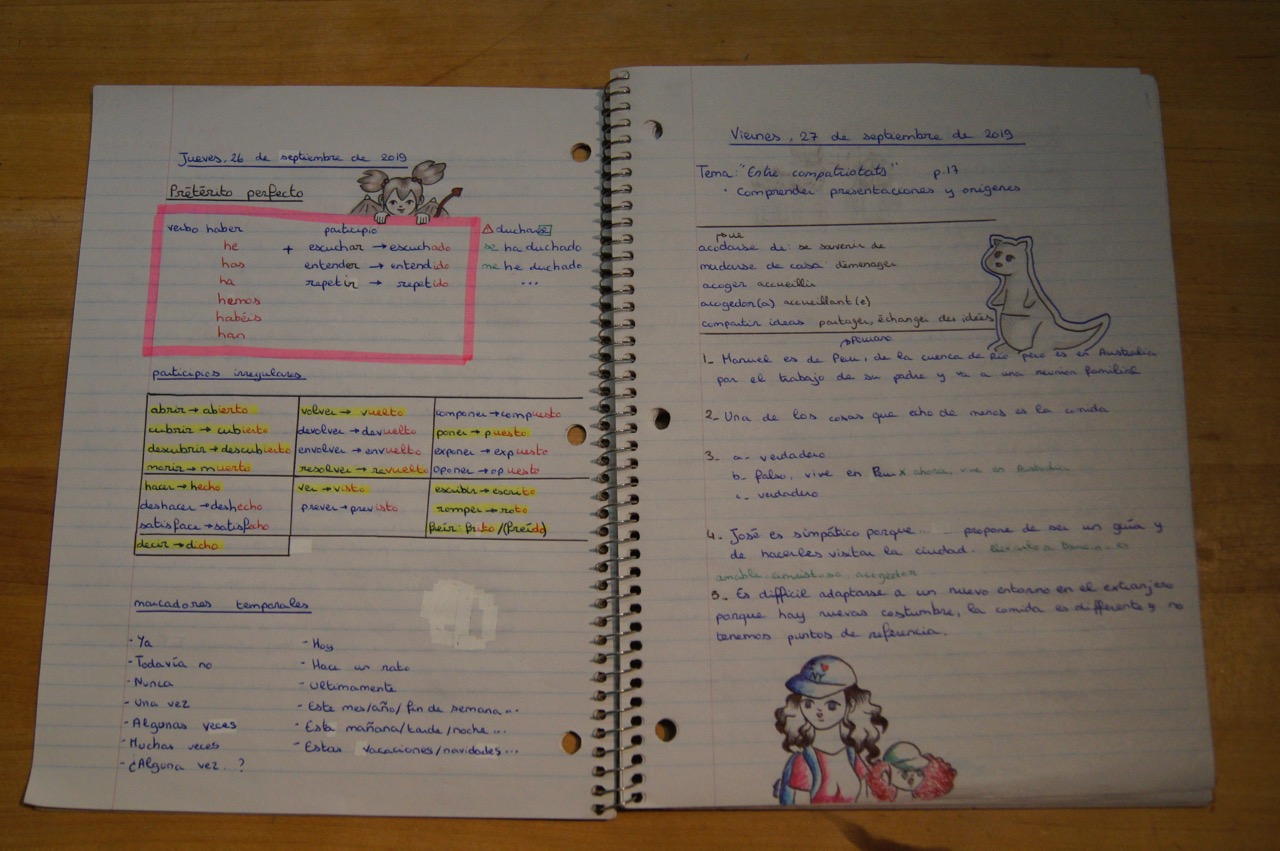 Jueves, 26 de septiembre de 2019
Prétérito perfecto
verbo haber participio
he + escuchar → escuchado
has entender → entendido
ha repetir → repetido
hemos
habéis
han
⚠ ducharse
se ha duchado
me he duchado
...
participios irregulares
abrir → abierto volver → vuelto componer → compuesto
cubrir → cubierto devolver → devuelto poner → puesto
descubrir → descubierto envolver → envuelto exponer → expuesto
morir → muerto resolver → resvuelto oponer → opuesto
hacer → hecho ver → visto escribir → escrito
deshacer → deshecho prever → previsto romper → roto
satisface → satisfacho freír: frito / (freído)
decir → dicho
marcadores temporales
- Ya - Hoy
- Todavía no - Hace un rato
- Nunca - Ultimamente
- Una vez - Este mes/año/ fin de semana...
- Algunas veces - Esta mañana/tarde/noche...
- Muchas veces - Estas vacaciones/navidades...
- ¿Alguna vez..?
Viernes, 27 de septiembre de 2019
Tema: "Entre compatriotats" p.17
• Comprender presentaciones y orígenes
acodarse de: se souvenir de
mudarse de casa: démenager
acoger accueillir
acogedor(a) accueillant(e)
compartir ideas partager, échanger des idées
1_ Manuel es de Peru, de la cuenca de Río pero es en Australia
por el trabajo de su padre y va a una reunion familial
2_ Una de los cosas que echo de menos es la comida
3_ a_ verdadero
b_ falso, vive en Peru x ahora, vive en Australia
c_ verdadero
4_ José es simpático porque... propone de ser un guía y
de hacerles visitar la ciudad.
amable acogedor
5_ Es difficil adaptarse a un nuevo entorno en el extranjero
porque hay nuevas costumbre, la comida es differente y no
tenemos puntos de referencia.
NY